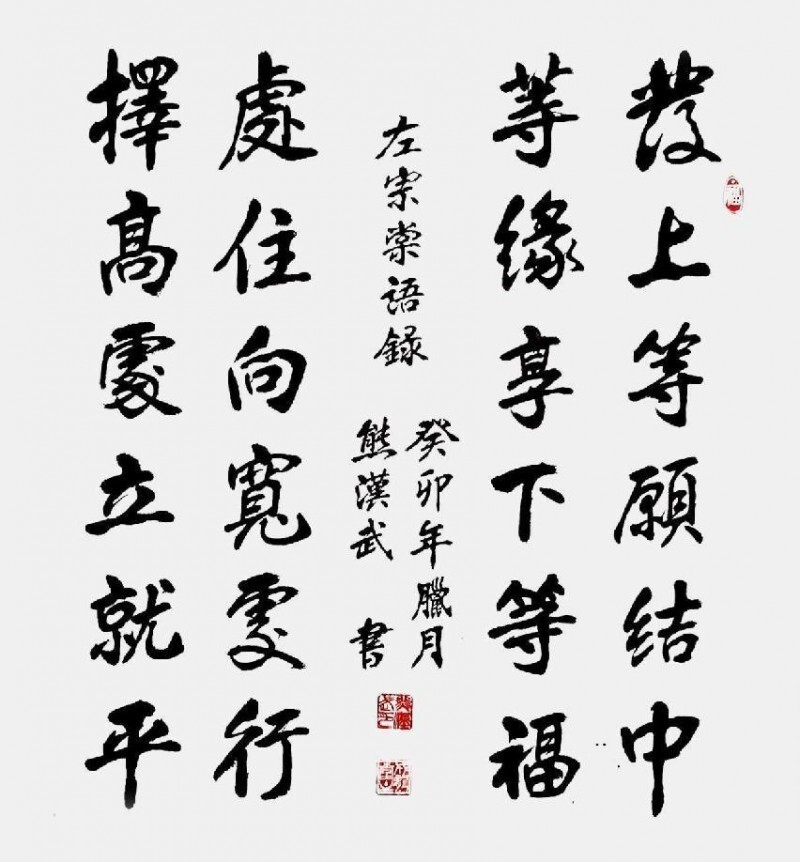 發上等願結中
等緣享下等福
擇高處立就平
處住向寬處行
左宗棠語錄
癸卯年臘月
熊漢武 書